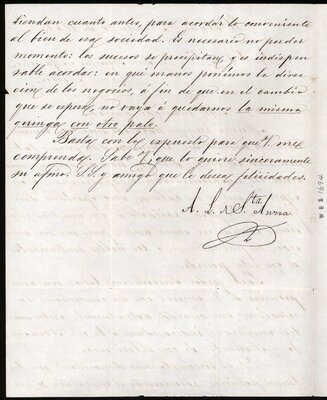 tiendan cuanto antes, para acordar lo conveniente
al bien de esa sociedad. Es necesario no perder
momento: los sucesos se precipitan, y es indispen
sable acordar: en que manos ponémos la direc
cion de los negocios, á fin de que en el cambio
que se espera, no vaya á quedarnos la misma
geringa con otro palo.
Basta con lo expuesto para que V. me
comprenda. Sabe V. que lo quiere sinceramente
su afmo. S.S. y amigo que le desea felicidades.
A. L. de Sta. Anna
WBS 1694